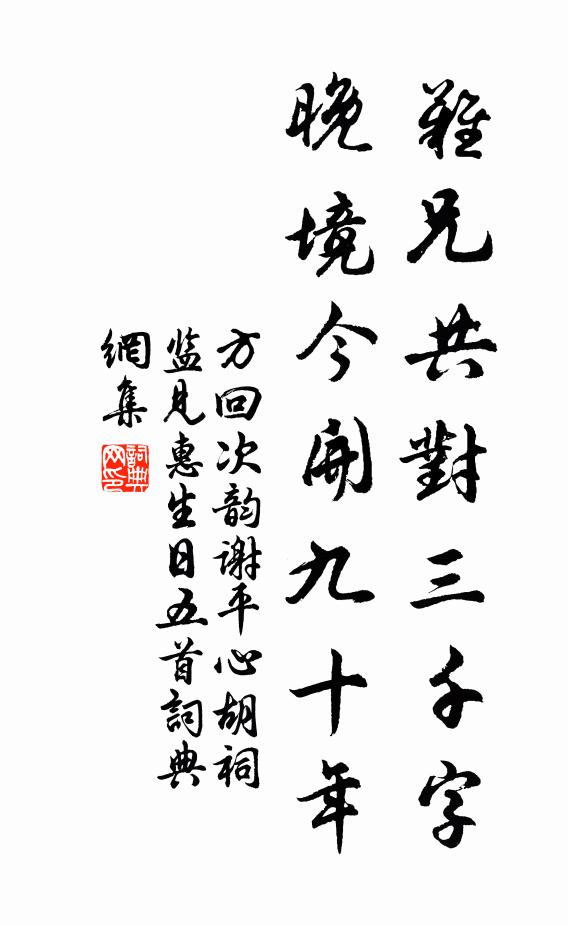 難兄共對三千字
晚境今開九十年
方回次韵谢平心胡祠
监见惠生日五首詞典
網集
詞典
网印